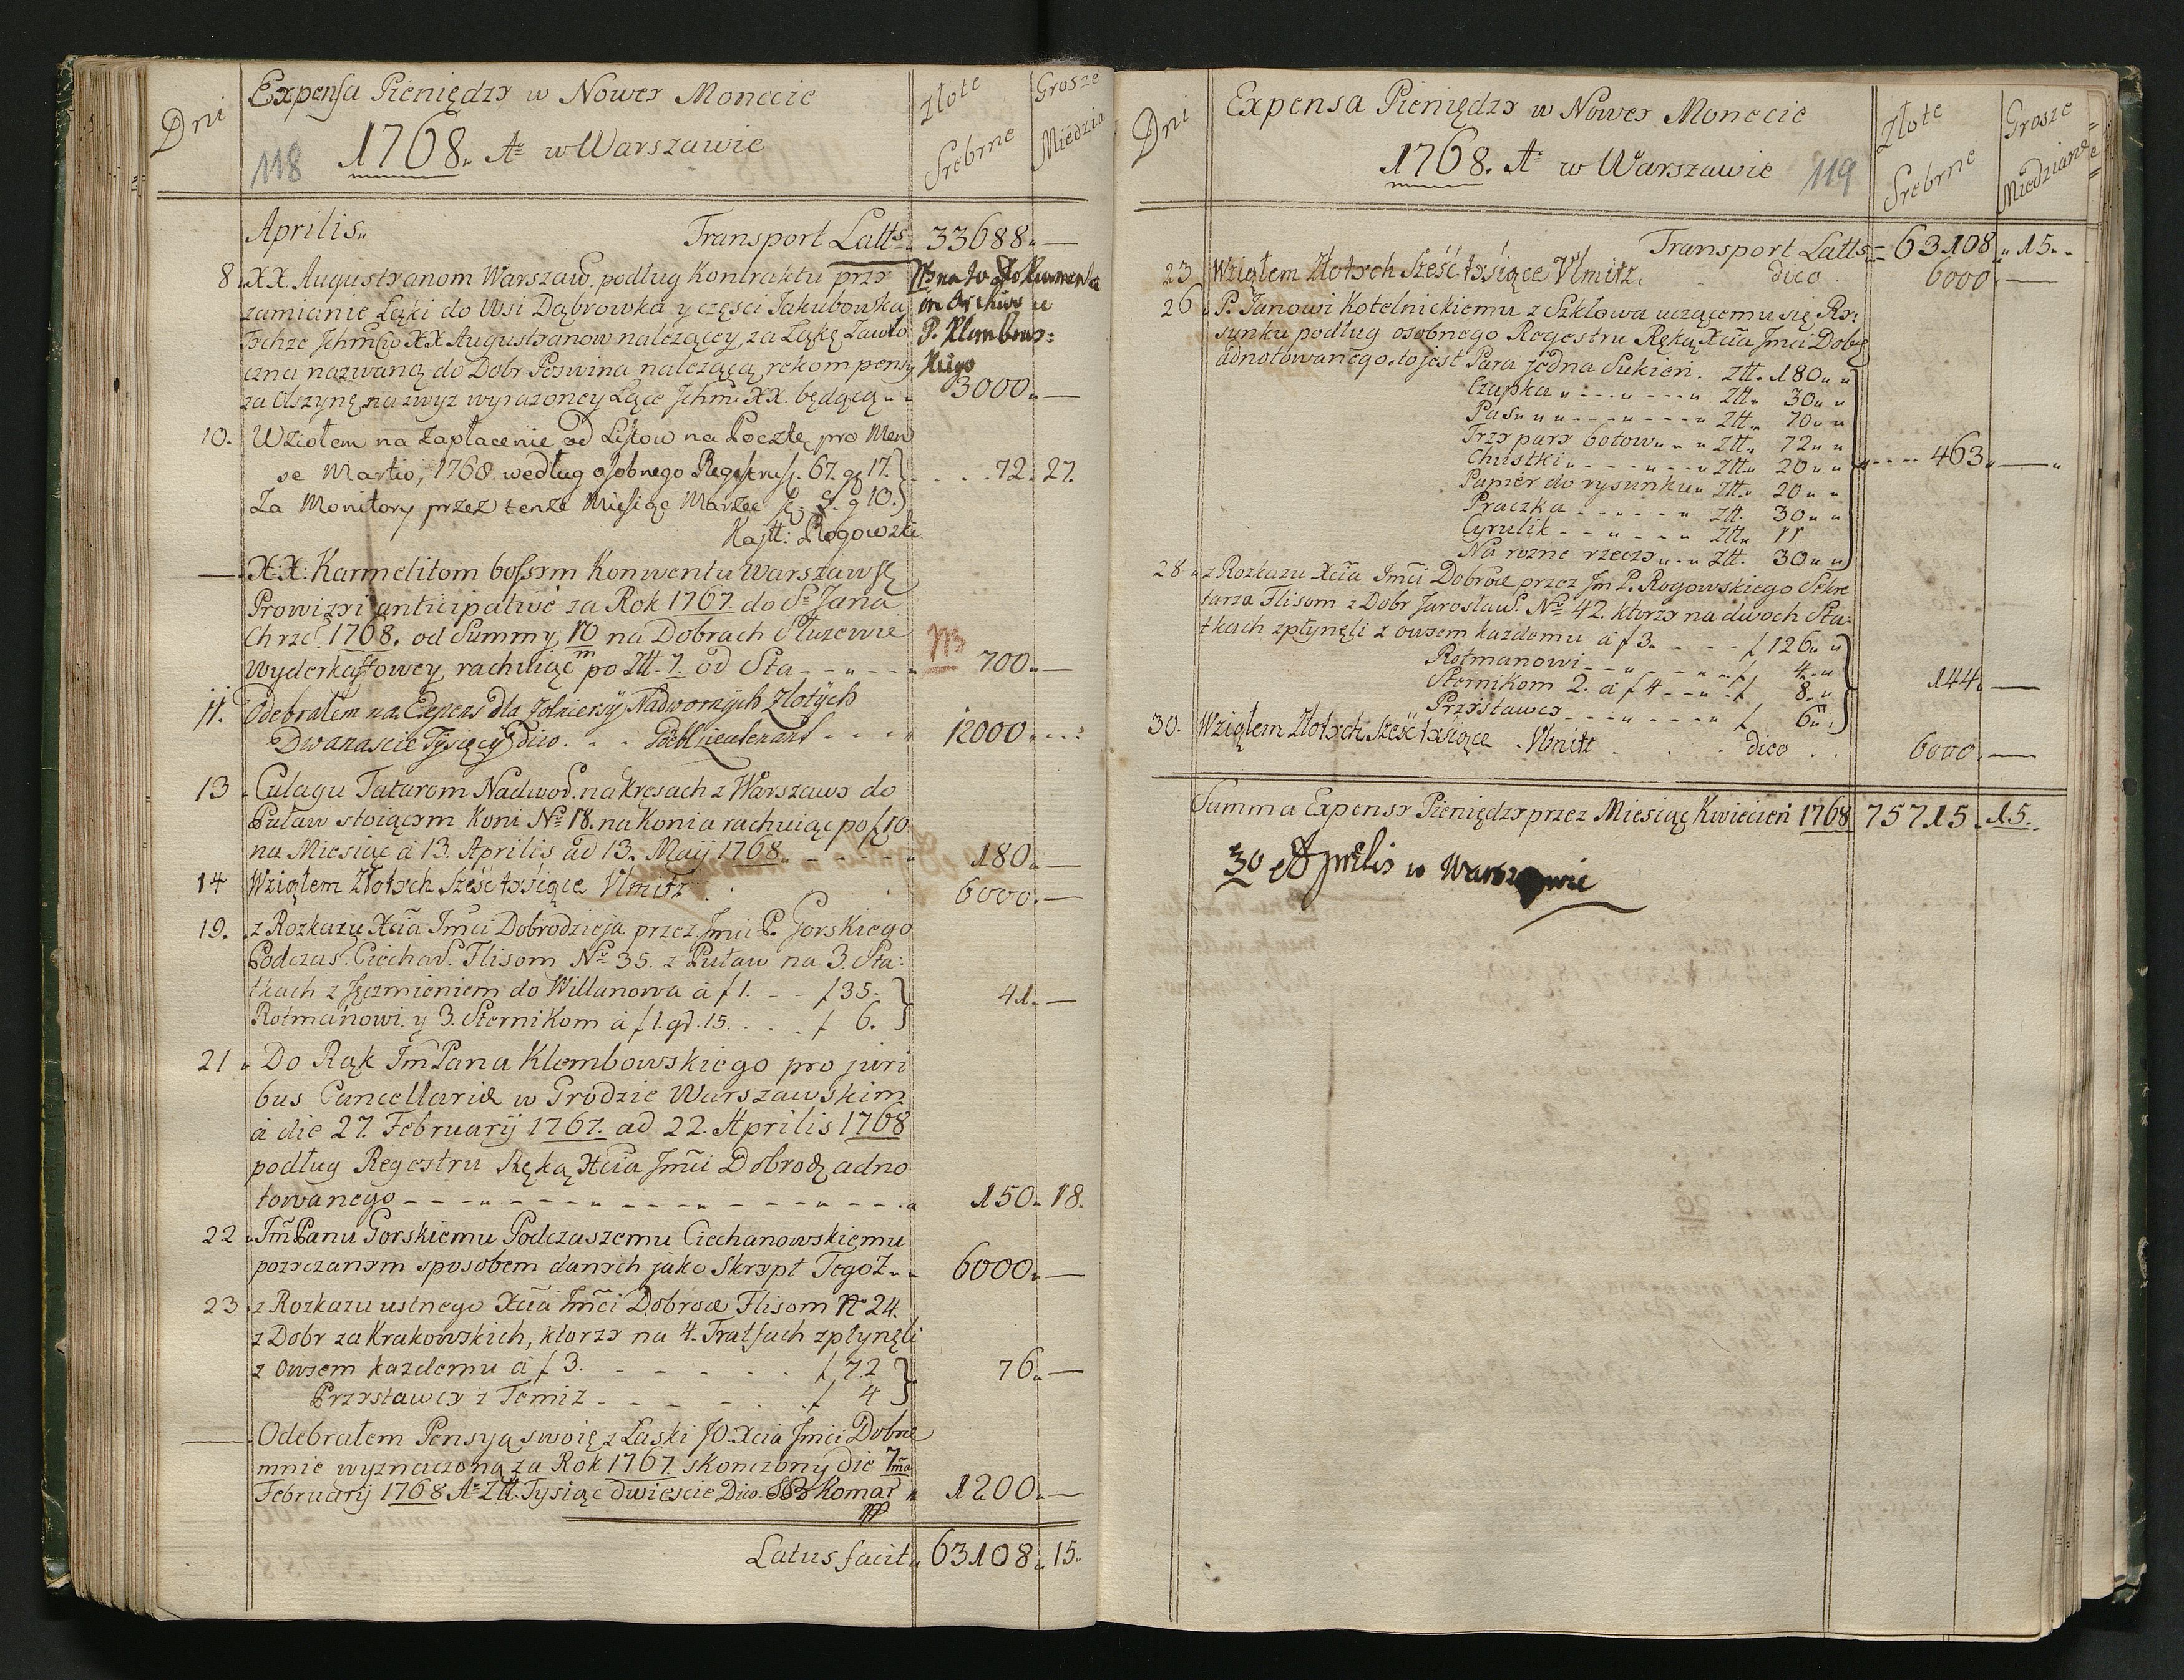 Dni
Expensa Pieniędzy w Nowey Monecie
Złote Srebrne
Grosze Miedzia
118 1768. Ao w Warszawie
Aprilis
Transport Latts 33688 —
8 XX. Augustyanom Warszaw. podług Kontraktu przy
zamianie Łąki do Wsi Dąbrowka y częsci Jakubowska
Tychze Jchmciow XX Augustyanow nalezącey za Łąkę Zawło
czna nazwaną do Dobr Poswina nalezącą, rekompensy
za Olszynę na zwyz wyrazoney Łące Jchm. XX. będącą 3000 —
NB na to Dokumenta
in Archivo u
P. Klembows:
kiego
10. Wziołem na zapłacenie od Listow na Pocztę pro Men
se Martio, 1768. według osobnego Regestru f. 67. g 17.
72. 27.
Za Monitory przez tenze Miesiąc Marzec f. 5. g 10.
Kajtt: Rogowski
— X:X: Karmelitom bossym Konwentu Warszawsk
Prowizyi anticipative za Rok 1767. do S. Jana
Chrzc. 1768. od Summy 10/m na Dobrach Słuzewie
Wyderkaffowey rachuiąc po Ztt. 7. od Sta NB 700 —
11. Odebrałem na Expens dla Zołnierzy Nadwornych Złotych
Dwanascie Tysięcy dico. Göebl lieutenant 12000
13 Culagu Tatarom Nadwor. na Kręsach z Warszawy do
Puław stoiącym Koni No 18. na Konia rachuiąc po f 10
na Miesiąc a 13. Aprilis ad 13. Maij 1768. 180 —
14 Wziąłem Złotych Sześć tysięce Vlmitz 6000. —
19. z Rozkazu Xcia Jmci Dobrodzieja przez Jmci P. Gorskiego
Podczas. Ciechan. Flisom No 35. z Puław na 3. Sta:
tkach z Jęczmieniem do Willanowa a f 1. f 35.
41. —
Rotmanowi. y 3. Sternikom a f 1. gr. 15. f 6.
21 Do Rąk Jm Pana Klembowskiego pro juri
bus Cancellariæ w Grodzie Warszawskim
a die 27. Februarij 1767. ad 22. Aprilis 1768
podług Regestru Ręką Xcia Jmci Dobrodz. adno
towanego 150. 18.
22 Jm Panu Gorskiemu Podczaszemu Ciechanowskiemu
pozyczanym sposobem danych jako Skrypt Tegoz 6000. —
23 z Rozkazu ustnego Xcia Jmci Dobrod Flisom No 24.
z Dobr za Krakowskich, ktorzy na 4. Tratfach zpłynęli
z Owsem kazdemu a f 3. f 72
76. —
Przystawcy z Temiz f 4
— Odebrałem Pensyą swoię z Łaski JO. Xcia Jmci Dobr
mnie wyznaczoną za Rok 1767. skonczony die 7ma
February 1768 Ao Ztt. Tysiąc dwiescie Dico. Komar 1200. —
Latus facit 63108. 15.
Dni
Expensa Pieniędzy w Nowey Monecie
Złote Srebrne
Grosze Miedziane
1768. Ao w Warszawie 119
Transport Latts 63108. 15.
23 Wziąłem Złotych Sześć tysięce Vlmitz. dico 6000. —
26 P. Janowi Kotelnickiemu z Szkłowa uczącemu się Ry:
sunku podług osobnego Regestru Ręką Xcia Jmci Dobrg
adnotowanego. to jest Para jedna Sukien. Ztt. 180
Czapka Ztt. 30
Pas Ztt. 70
Trzy pary botow Ztt. 72
Chustki Ztt. 20
463. —
Papier do rysunku Ztt. 20
Praczka Ztt. 30
Cyrulik Ztt. 11
Na rozne rzeczy Ztt. 30
28 z Rozkazu Xcia Jmci Dobrod przez Jm P. Rogowskiego Sekre
tarza Flisom z Dobr Jarosław. No 42. ktorzy na dwoch Sta:
tkach zpłynęli z owsem kazdemu a f 3. f 126
Rotmanowi f 4
Sternikom 2. a f 4 f 8
144. —
Przystawcy f 6
30. Wziąłem Złotych Sześć tysiące Vlmitz dico 6000. —
Summa Expensy Pieniędzy przez Miesiąc Kwiecień 1768 75715. 15.
30 Aprilis w Warszawie